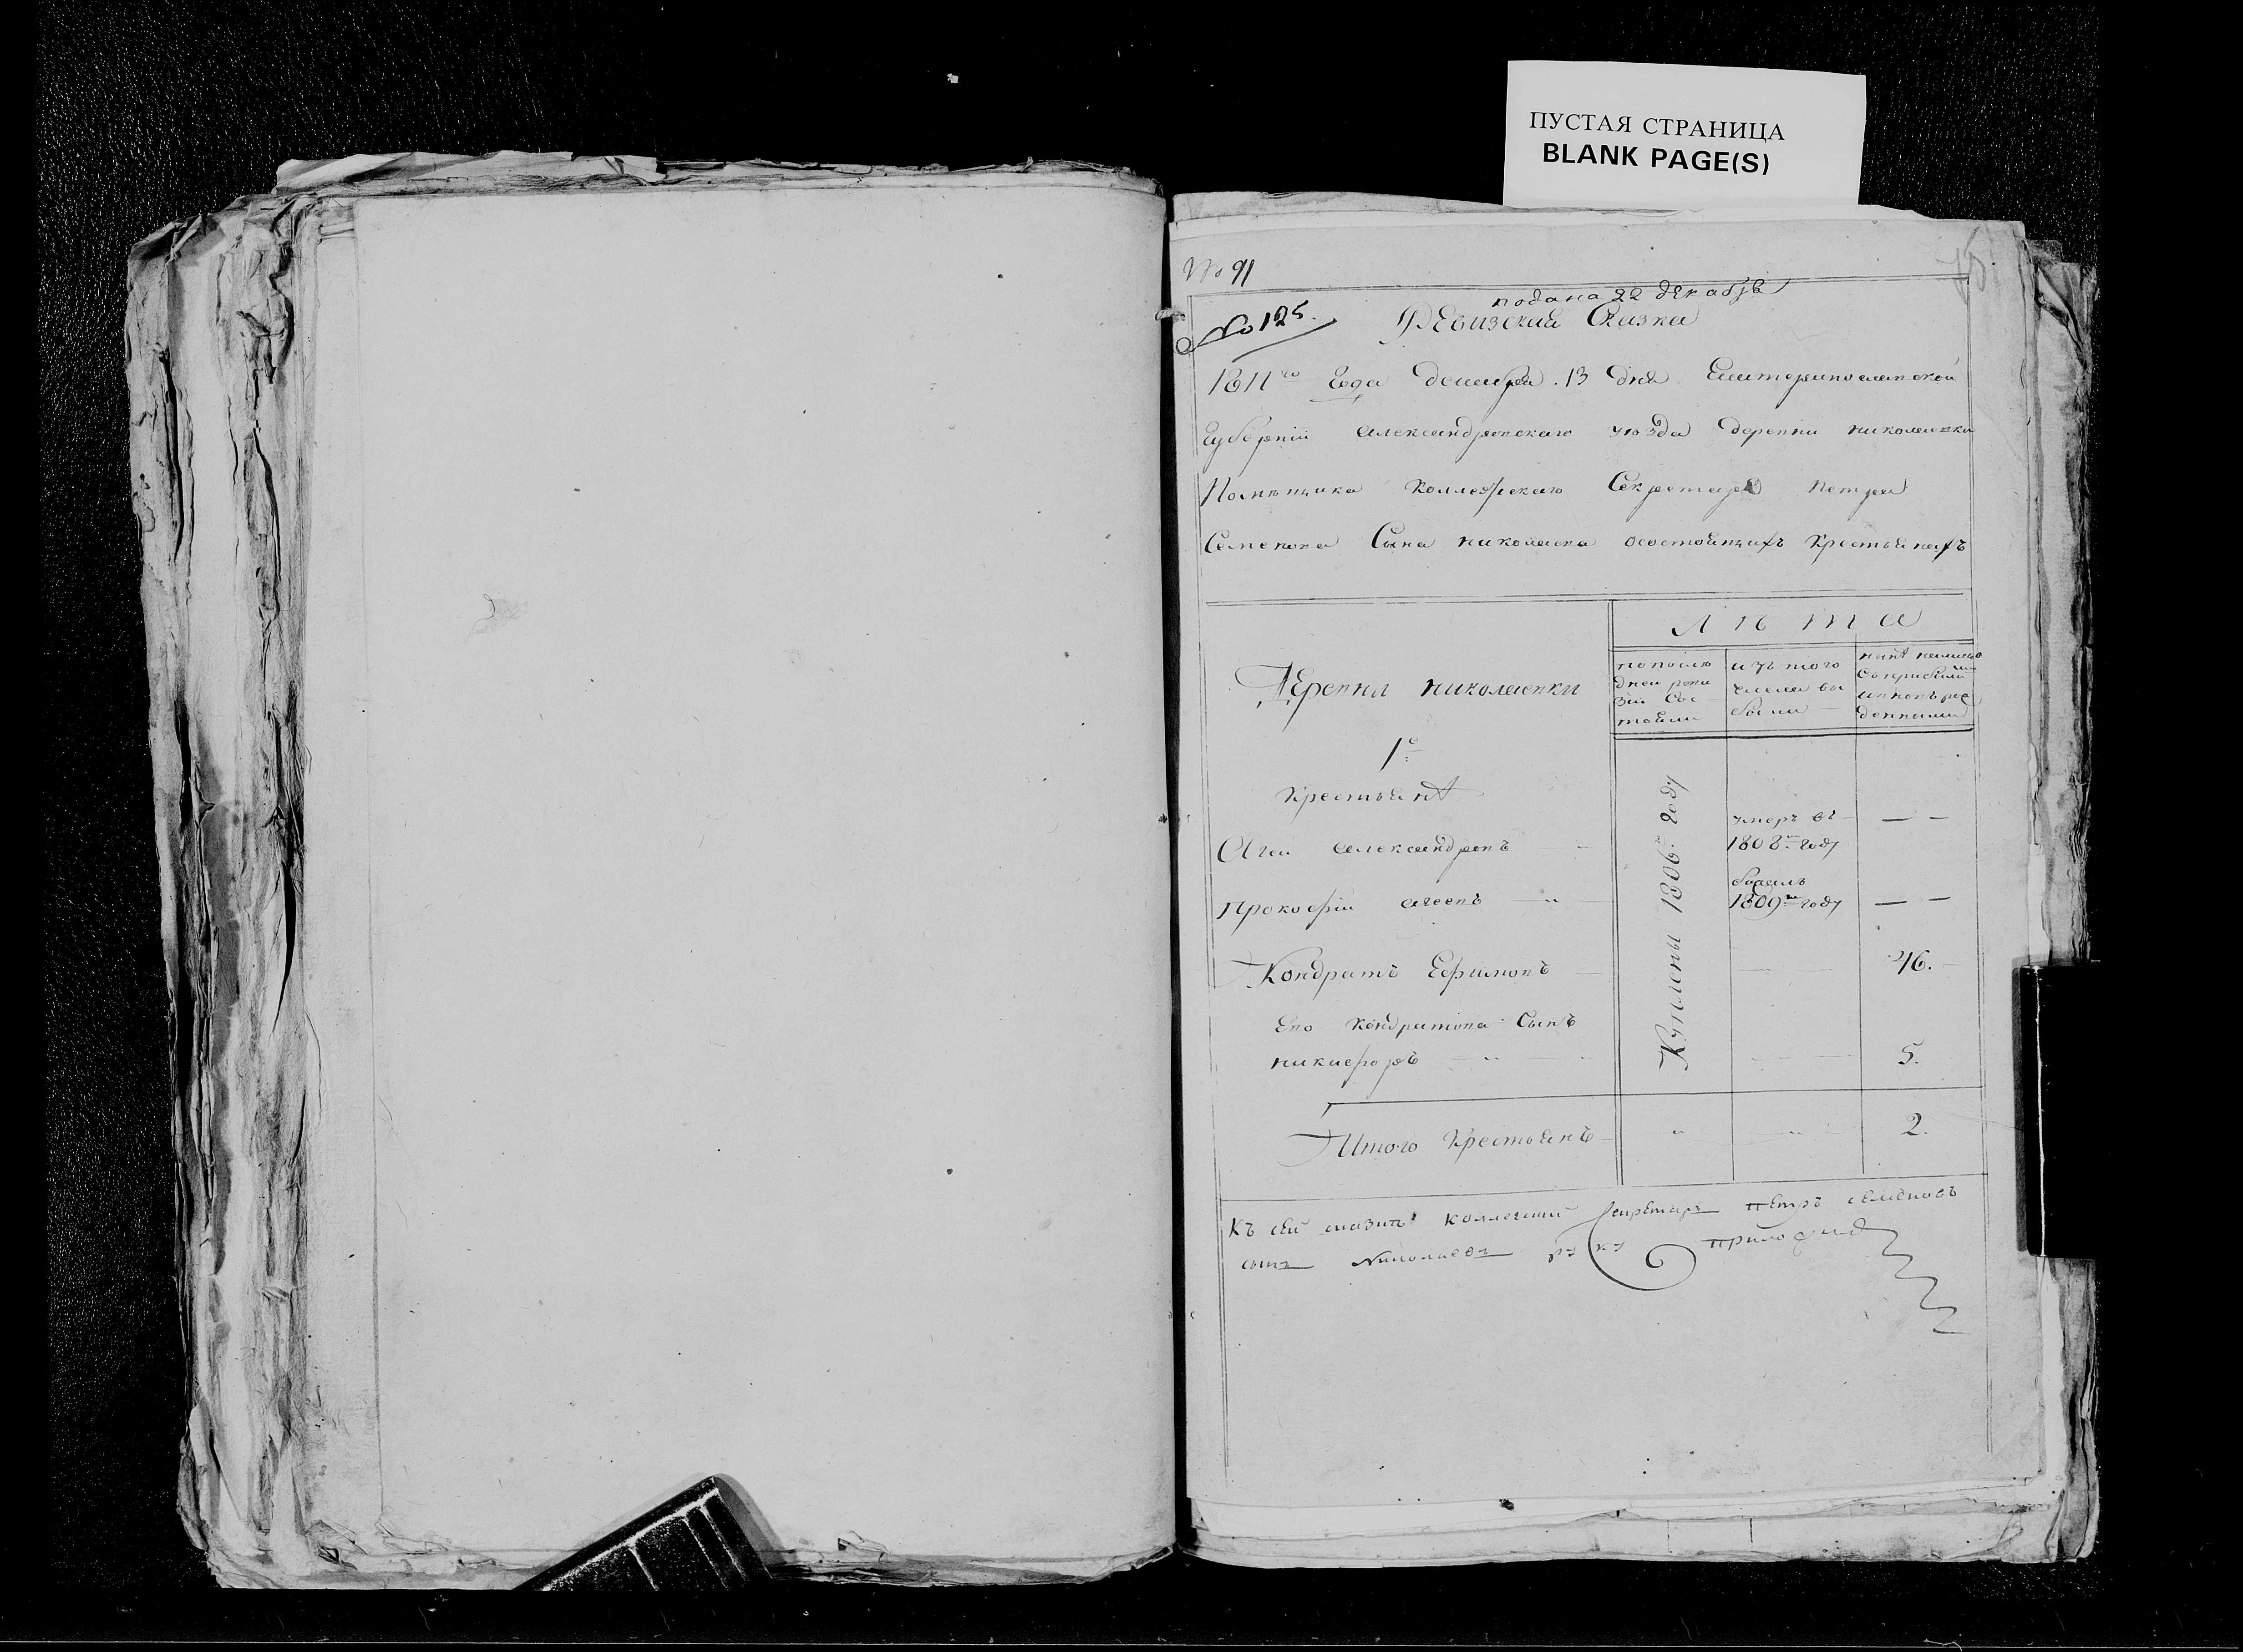 ПУСТАЯ СТРАНИЦА
BLANK PAGE(S)
№ 91
подана 22 декабря
№ 125.
Ревизская Сказка
1811го Года декабря 13 дня Екатеринославской
Губернии александровского уѣзда деревни николаевки
Помѣщика Коллежскаго Секретаря Петра
Семенова Сына николаева осостоящихъ Крестьянахъ
Лѣта
Деревня николаевки
попослѣ
дней реви
зіи Сос
тояли
изъ того
числа вы
были
нынѣ налицо
1е
Крестьянѣ
Агей александровъ
умеръ въ
1808м году
— —
Прокофій агеевъ
бѣжалъ
1809м году
— —
Куплены 1806м году
Кондратъ Ефимовъ
46.
Ево Кондратова Сынъ
никифоръ
5.
Итого Крестьянъ
2.
Къ сей сказкѣ коллежский секретарь Петръ семеновъ
сынъ Николаевъ руку приложилъ